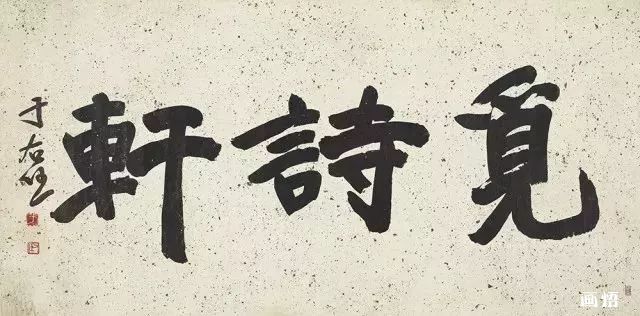 覓詩軒
于右任
画焐